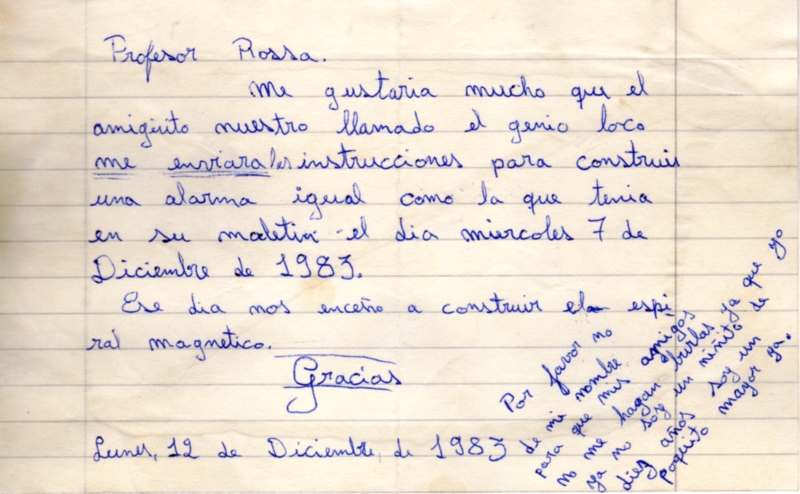 Profesor Rossa.
Me gustaria mucho que el
amiguito nuestro llamado el genio loco
me enviara las instrucciones para construir
una alarma igual como la que tenia
en su maletin el dia miercoles 7 de
Diciembre de 1983.
Ese dia nos enceño a construir el espi
ral magnetico.
Gracias
Lunes, 12 de Diciembre, de 1983
Por favor no
de mi nombre
para que mis amigos
no me hagan burlas ya que yo
ya no soy un niñito de
diez años soy un
poquito mayor ya.